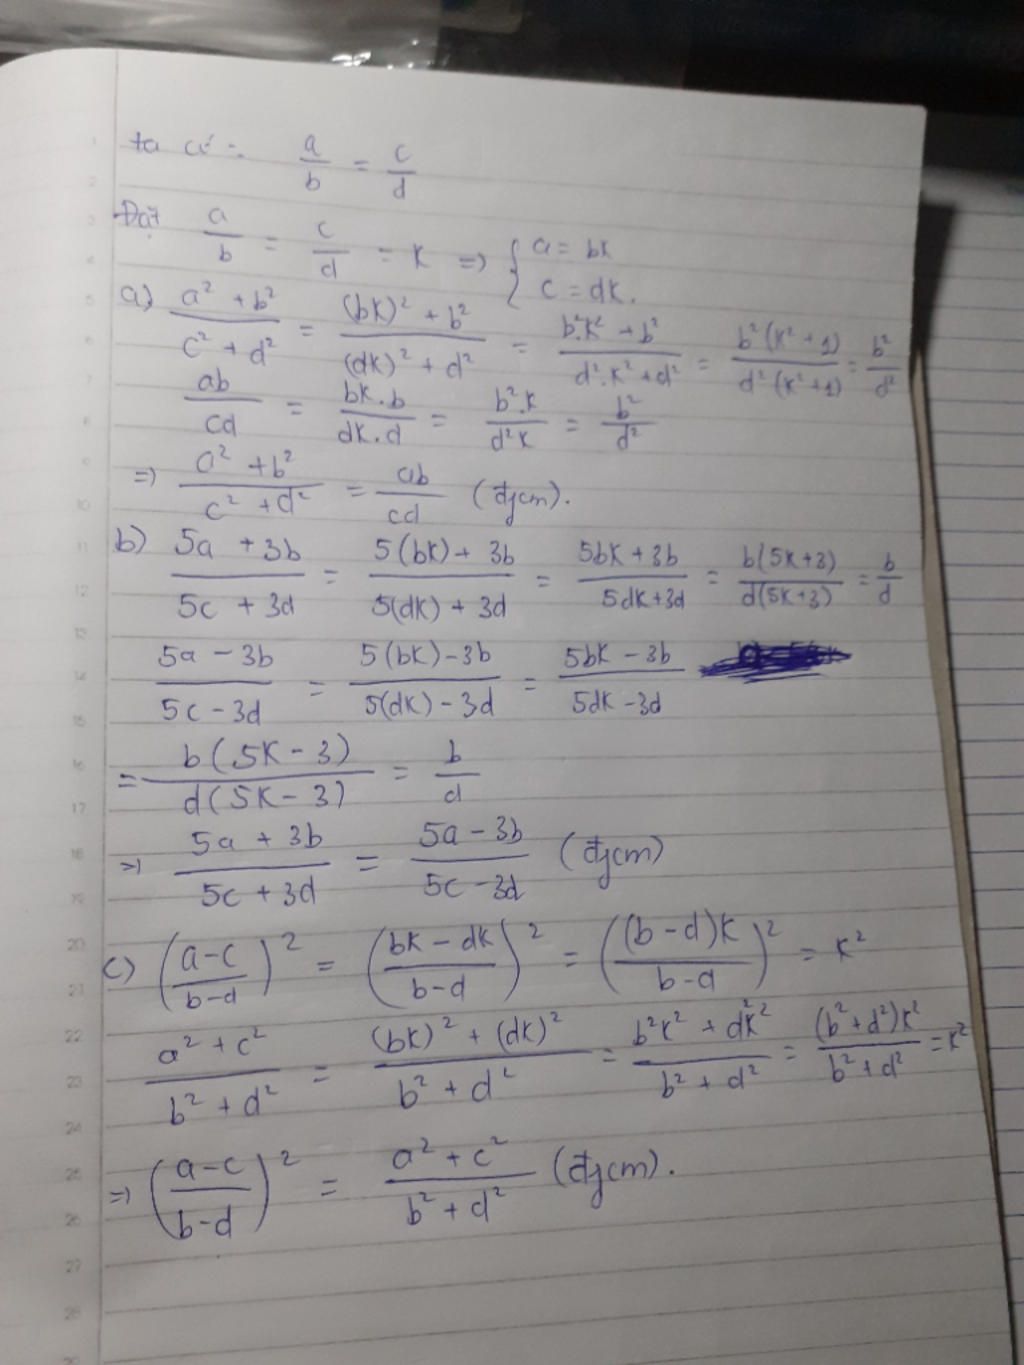 ta có: a/b = c/d
Đặt a/b = c/d = k => { a = bk
c = dk.
a) (a² + b²)/(c² + d²) = ((bk)² + b²)/((dk)² + d²) = (b².k² + b²)/(d².k² + d²) = (b²(k² + 1))/(d²(k² + 1)) = b²/d²
ab/cd = (bk.b)/(dk.d) = (b².k)/(d²k) = b²/d²
=> (a² + b²)/(c² + d²) = ab/cd (đjcm).
b) (5a + 3b)/(5c + 3d) = (5(bk) + 3b)/(5(dk) + 3d) = (5bk + 3b)/(5dk + 3d) = (b(5k + 3))/(d(5k + 3)) = b/d
(5a - 3b)/(5c - 3d) = (5(bk) - 3b)/(5(dk) - 3d) = (5bk - 3b)/(5dk - 3d)
= (b(5k - 3))/(d(5k - 3)) = b/d
=> (5a + 3b)/(5c + 3d) = (5a - 3b)/(5c - 3d) (đjcm)
c) ((a - c)/(b - d))² = ((bk - dk)/(b - d))² = (((b - d)k)/(b - d))² = k²
(a² + c²)/(b² + d²) = ((bk)² + (dk)²)/(b² + d²) = (b²k² + d²k²)/(b² + d²) = ((b² + d²)k²)/(b² + d²) = k²
=> ((a - c)/(b - d))² = (a² + c²)/(b² + d²) (đjcm).